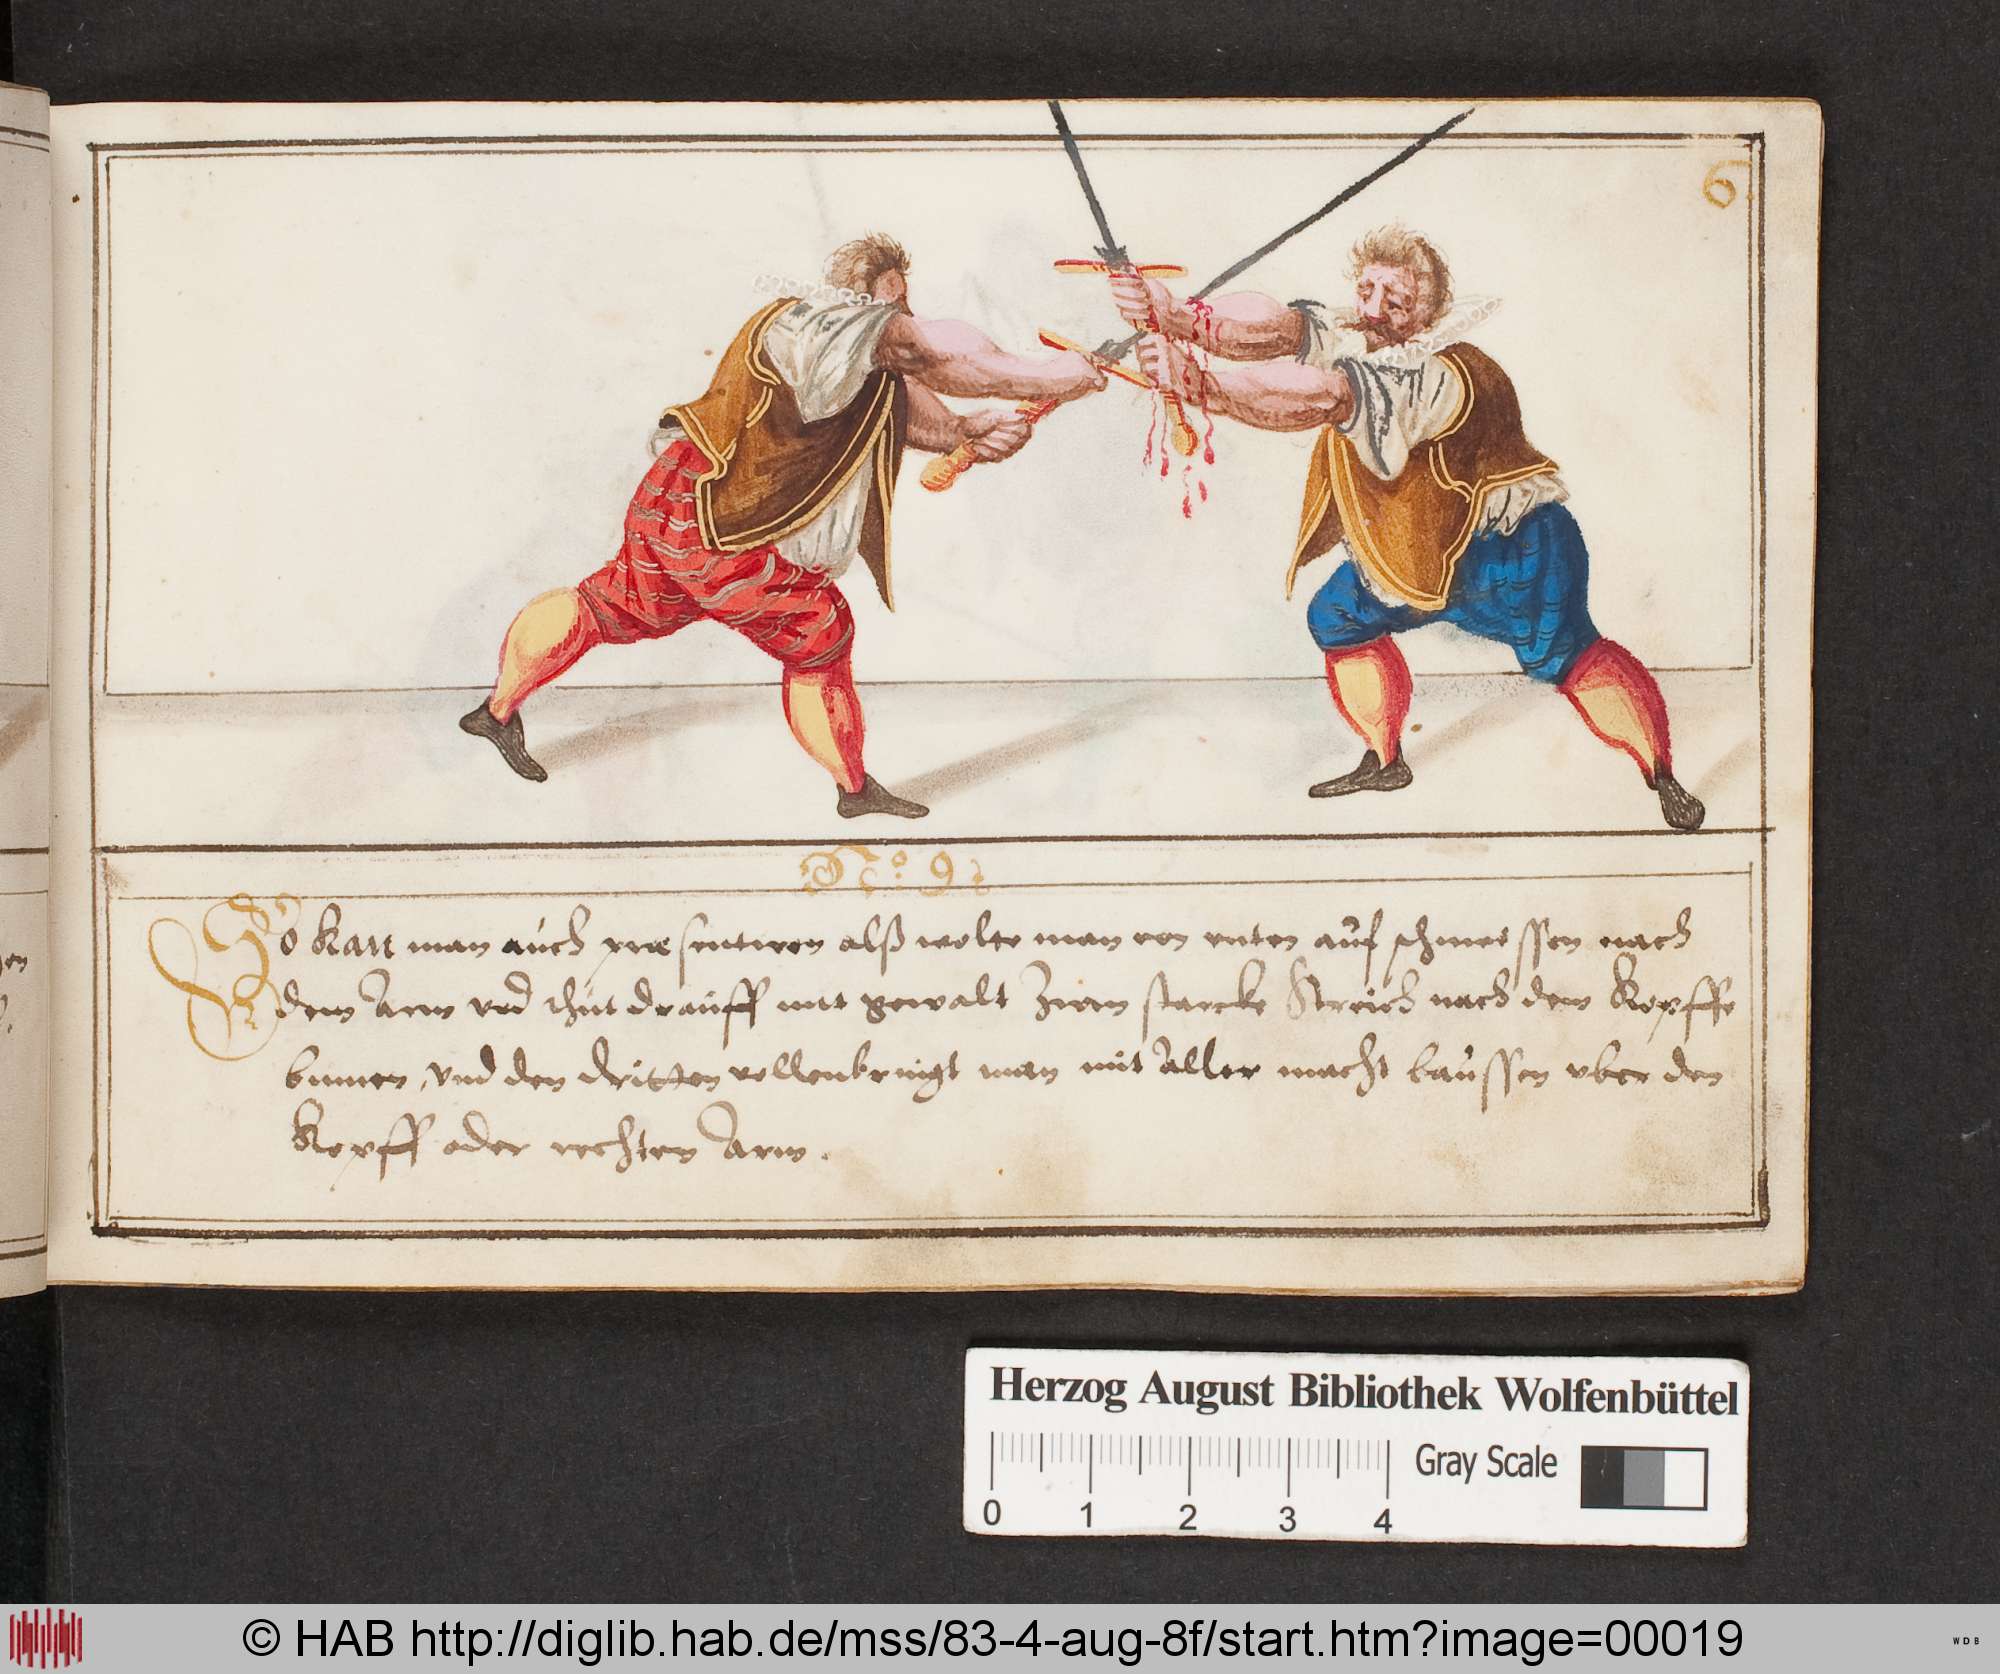 6
N.º 9:
So kan man auch præsentiren alß wolte man von vnten auf schmeissen nach
dem Arm vnd thut drauff mit gewalt zwen starcke Streich nach dem Kopffe
binnen, vnd den dritten vollenbringt man mit aller macht baussen vber den
Kopff oder rechten Arm.
Herzog August Bibliothek Wolfenbüttel
0 1 2 3 4
Gray Scale
© HAB http://diglib.hab.de/mss/83-4-aug-8f/start.htm?image=00019
WDB